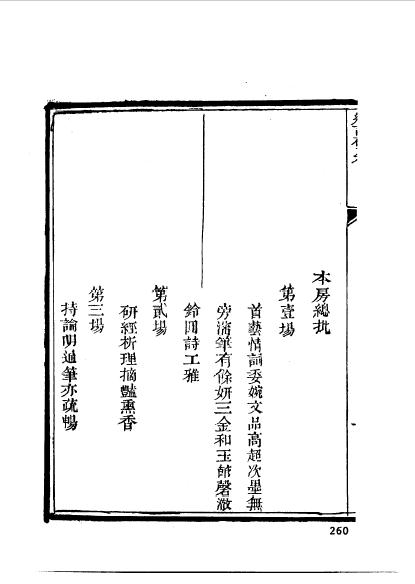 本房總批
第壹場
首藝情詞委婉文品高超次墨無
旁瀋筆有餘妍三金和玉節磬澈
鈴圓詩工雅
第貳場
研經析理摘豔熏香
第三場
持論明通筆亦疏暢
260